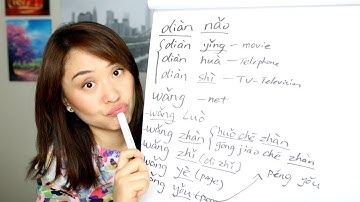 diàn nǎo
diàn yǐng - movie
diàn huà - Telephone
diàn shì - TV - Television
wǎng - net
- wǎng luò
- wǎng zhàn { huǒ chē zhàn
gōng jiāo chē zhàn
wǎng zhǐ (dì zhǐ)
wǎng yè (page)
wǎng yǒu péng yǒu